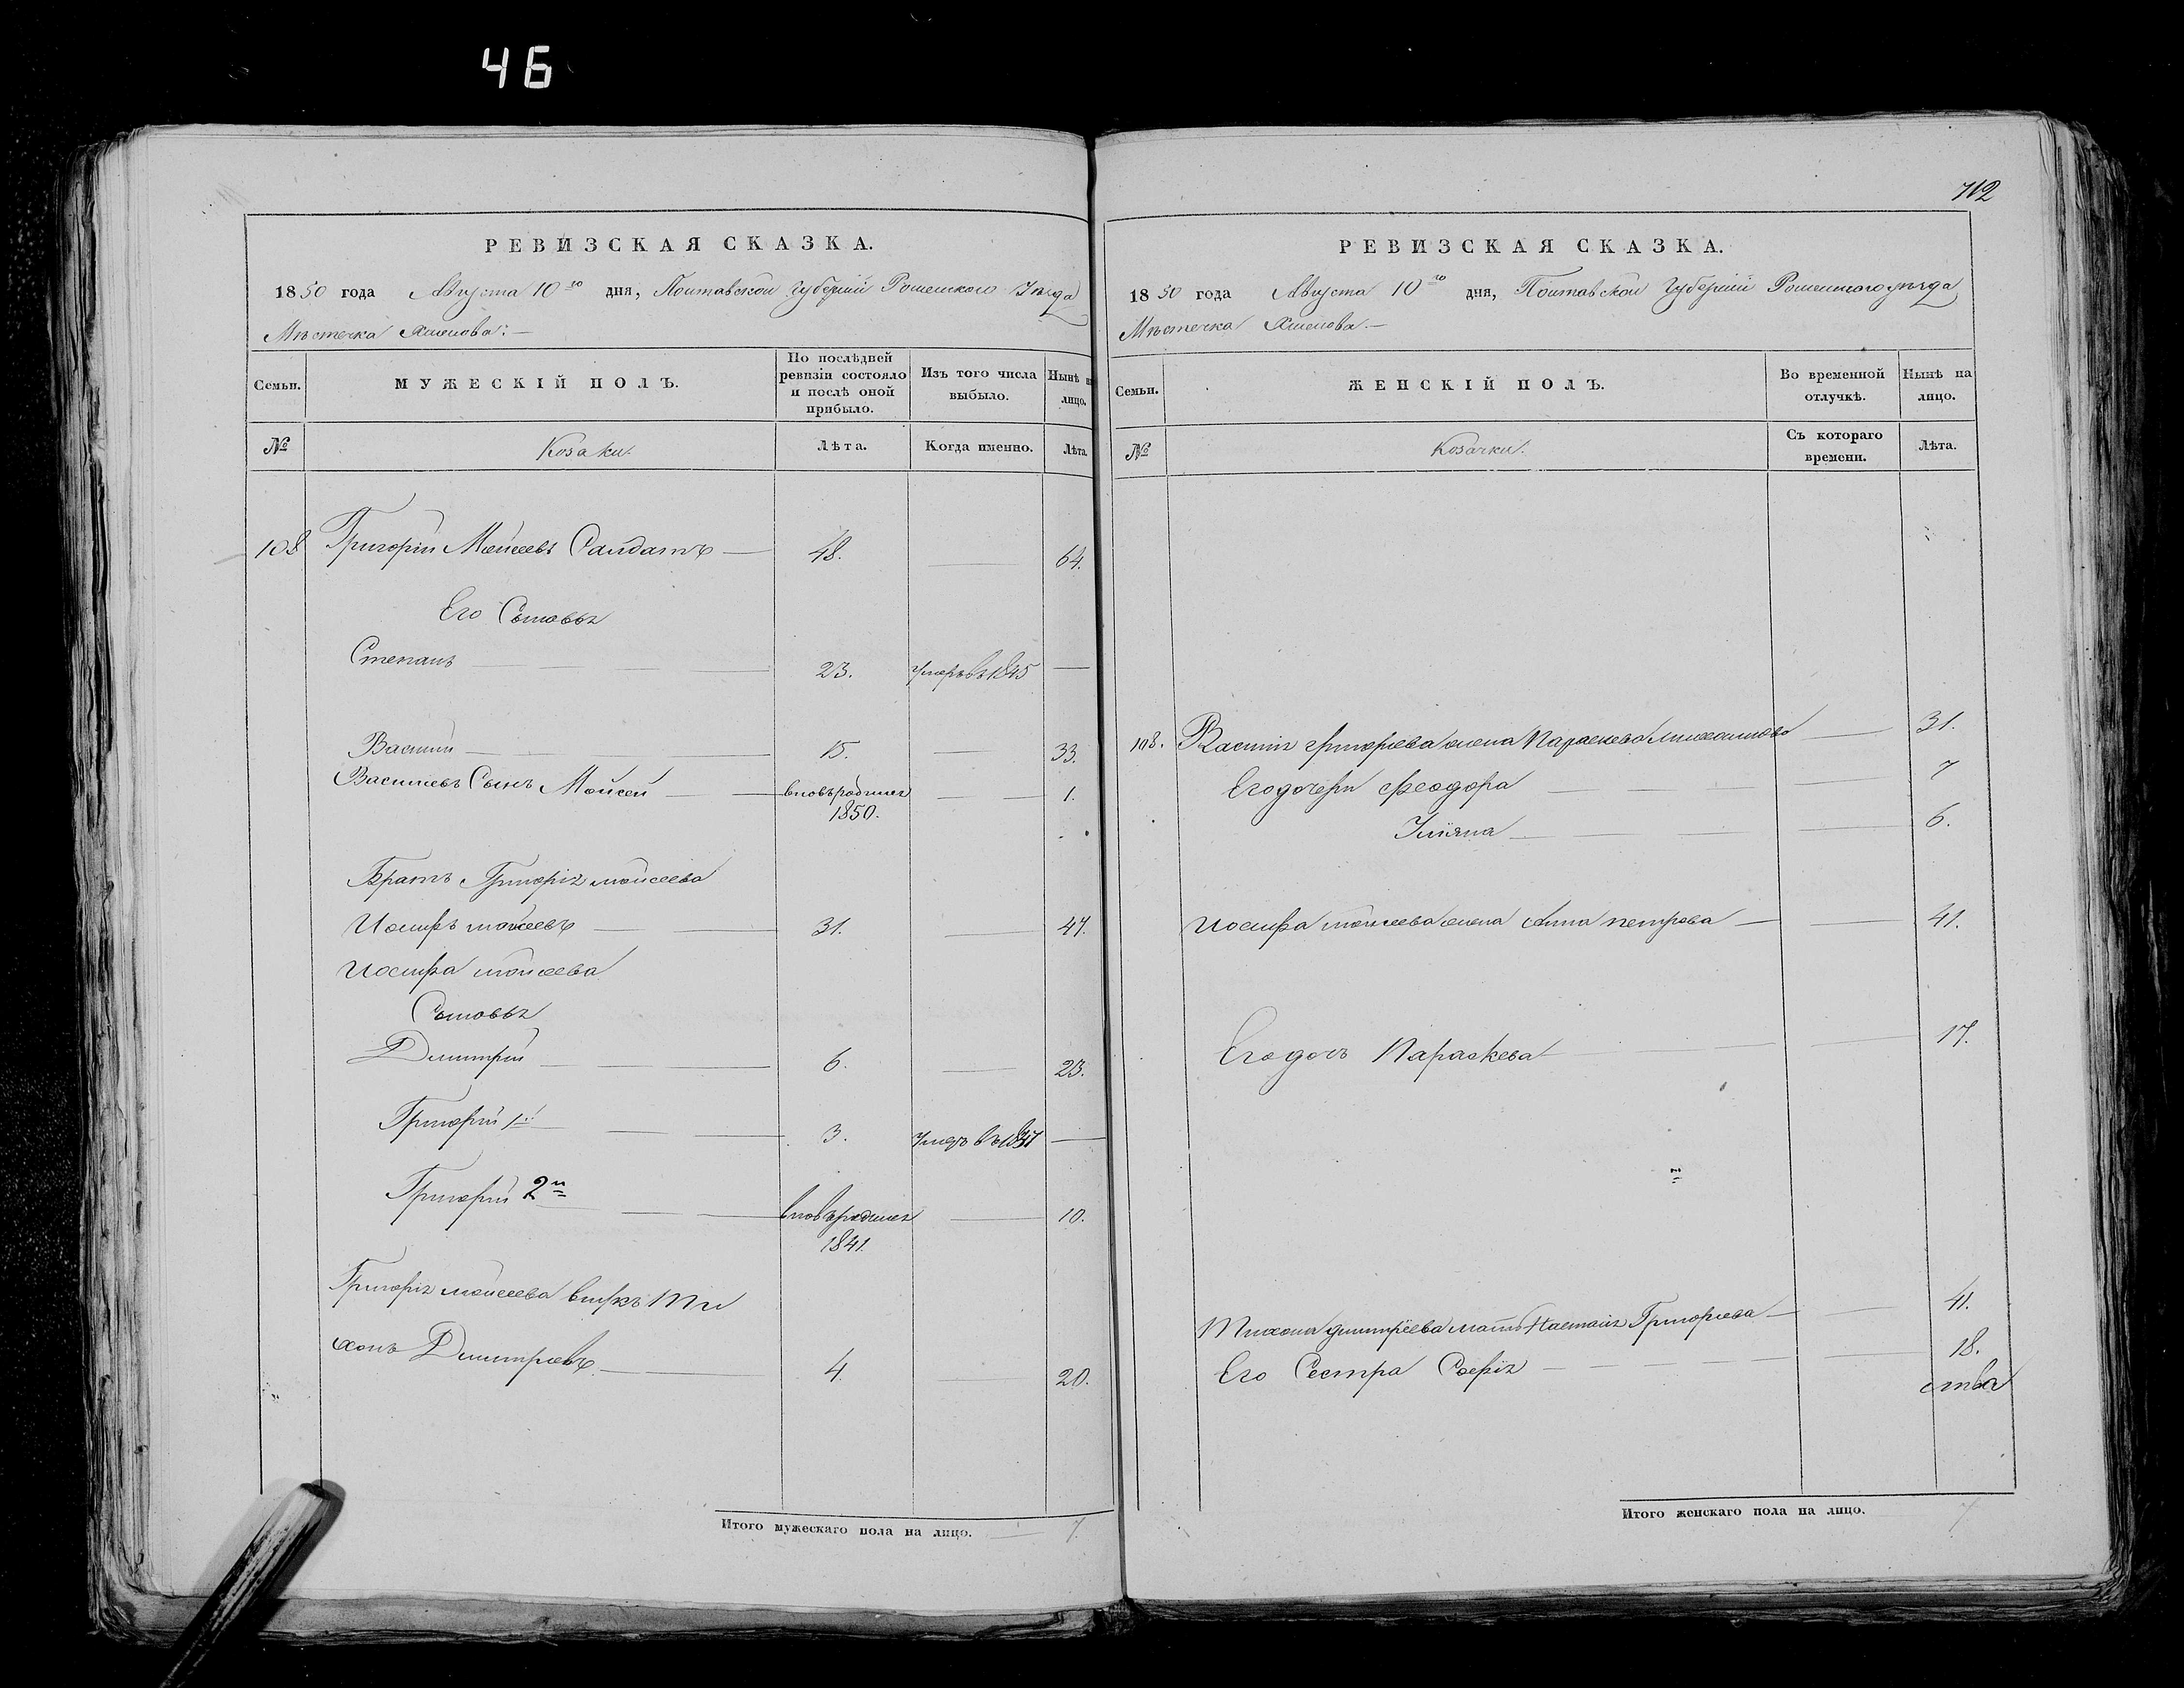 46
РЕВИЗСКАЯ СКАЗКА.
1850 года Августа 10го дня, Полтавской Губернии Роменского Уезда
Мѣстечка Хмелова:
Семьи.
МУЖЕСКІЙ ПОЛЪ.
По послѣдней ревизіи состояло и послѣ оной прибыло.
Изъ того числа выбыло.
Нынѣ на лицо.
№
Козаки.
Лѣта.
Когда именно.
Лѣта.
108 Григорій Моисеевъ Салдатъ 48. 64.
Его Сыновья
Степанъ 23. умеръ въ 1845
Василий 15. 33.
Васильевъ Сынъ Мойсей вновьродился 1.
1850.
Братъ Григорія моисеева
Иосифъ моисеевъ 31. 47.
Иосифа моисеева
Сыновья
Димитрий 6. 23.
Григорий 1й 3. Умеръ въ 1837
Григорий 2й вновьродился 10.
1841.
Григорія моисеева внукъ Ти
хонъ Димитриевъ 4. 20.
Итого мужескаго пола на лицо. 7.
112
РЕВИЗСКАЯ СКАЗКА.
1850 года Августа 10го дня, Полтавской Губернии Роменского уезда
Мѣстечка Хмелова.
Семьи.
ЖЕНСКІЙ ПОЛЪ.
Во временной отлучкѣ.
Нынѣ на лицо.
№
Козачки.
Съ котораго времени.
Лѣта.
108. Василія григориева жена Параскева 31.
Его дочери Феодора 7
Улияна 6.
Иосифа моисеева жена Анна петрова 41.
Его дочь Параскева 17.
Тихона димитриева мать Настасія Григориева 41.
Его Сестра Софія 18.
Итого женскаго пола на лицо. 7